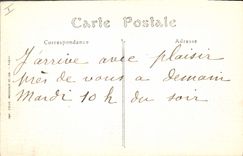 Carte Postale
Correspondance Adresse
J'arrive avec plaisir
près de vous a demain
Mardi 10 h du soir